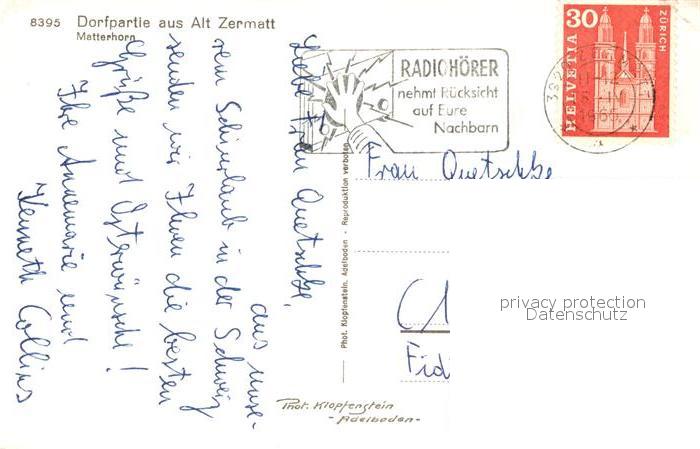 8395 Dorfpartie aus Alt Zermatt
Matterhorn
Liebe Frau Quetschke,
aus unse-
rem Schiurlaub in der Schweiz
senden wir Ihnen die besten
Grüße und Osterwünsche!
Ihre Annemarie und
Kenneth Collins
RADIOHÖRER
nehmt Rücksicht
auf Eure
Nachbarn
30
HELVETIA
ZÜRICH
Phot. Klopfenstein, Adelboden - Reproduktion verboten
Frau Quetschke
privacy protection
Datenschutz
Fid
Phot. Klopfenstein
- Adelboden -